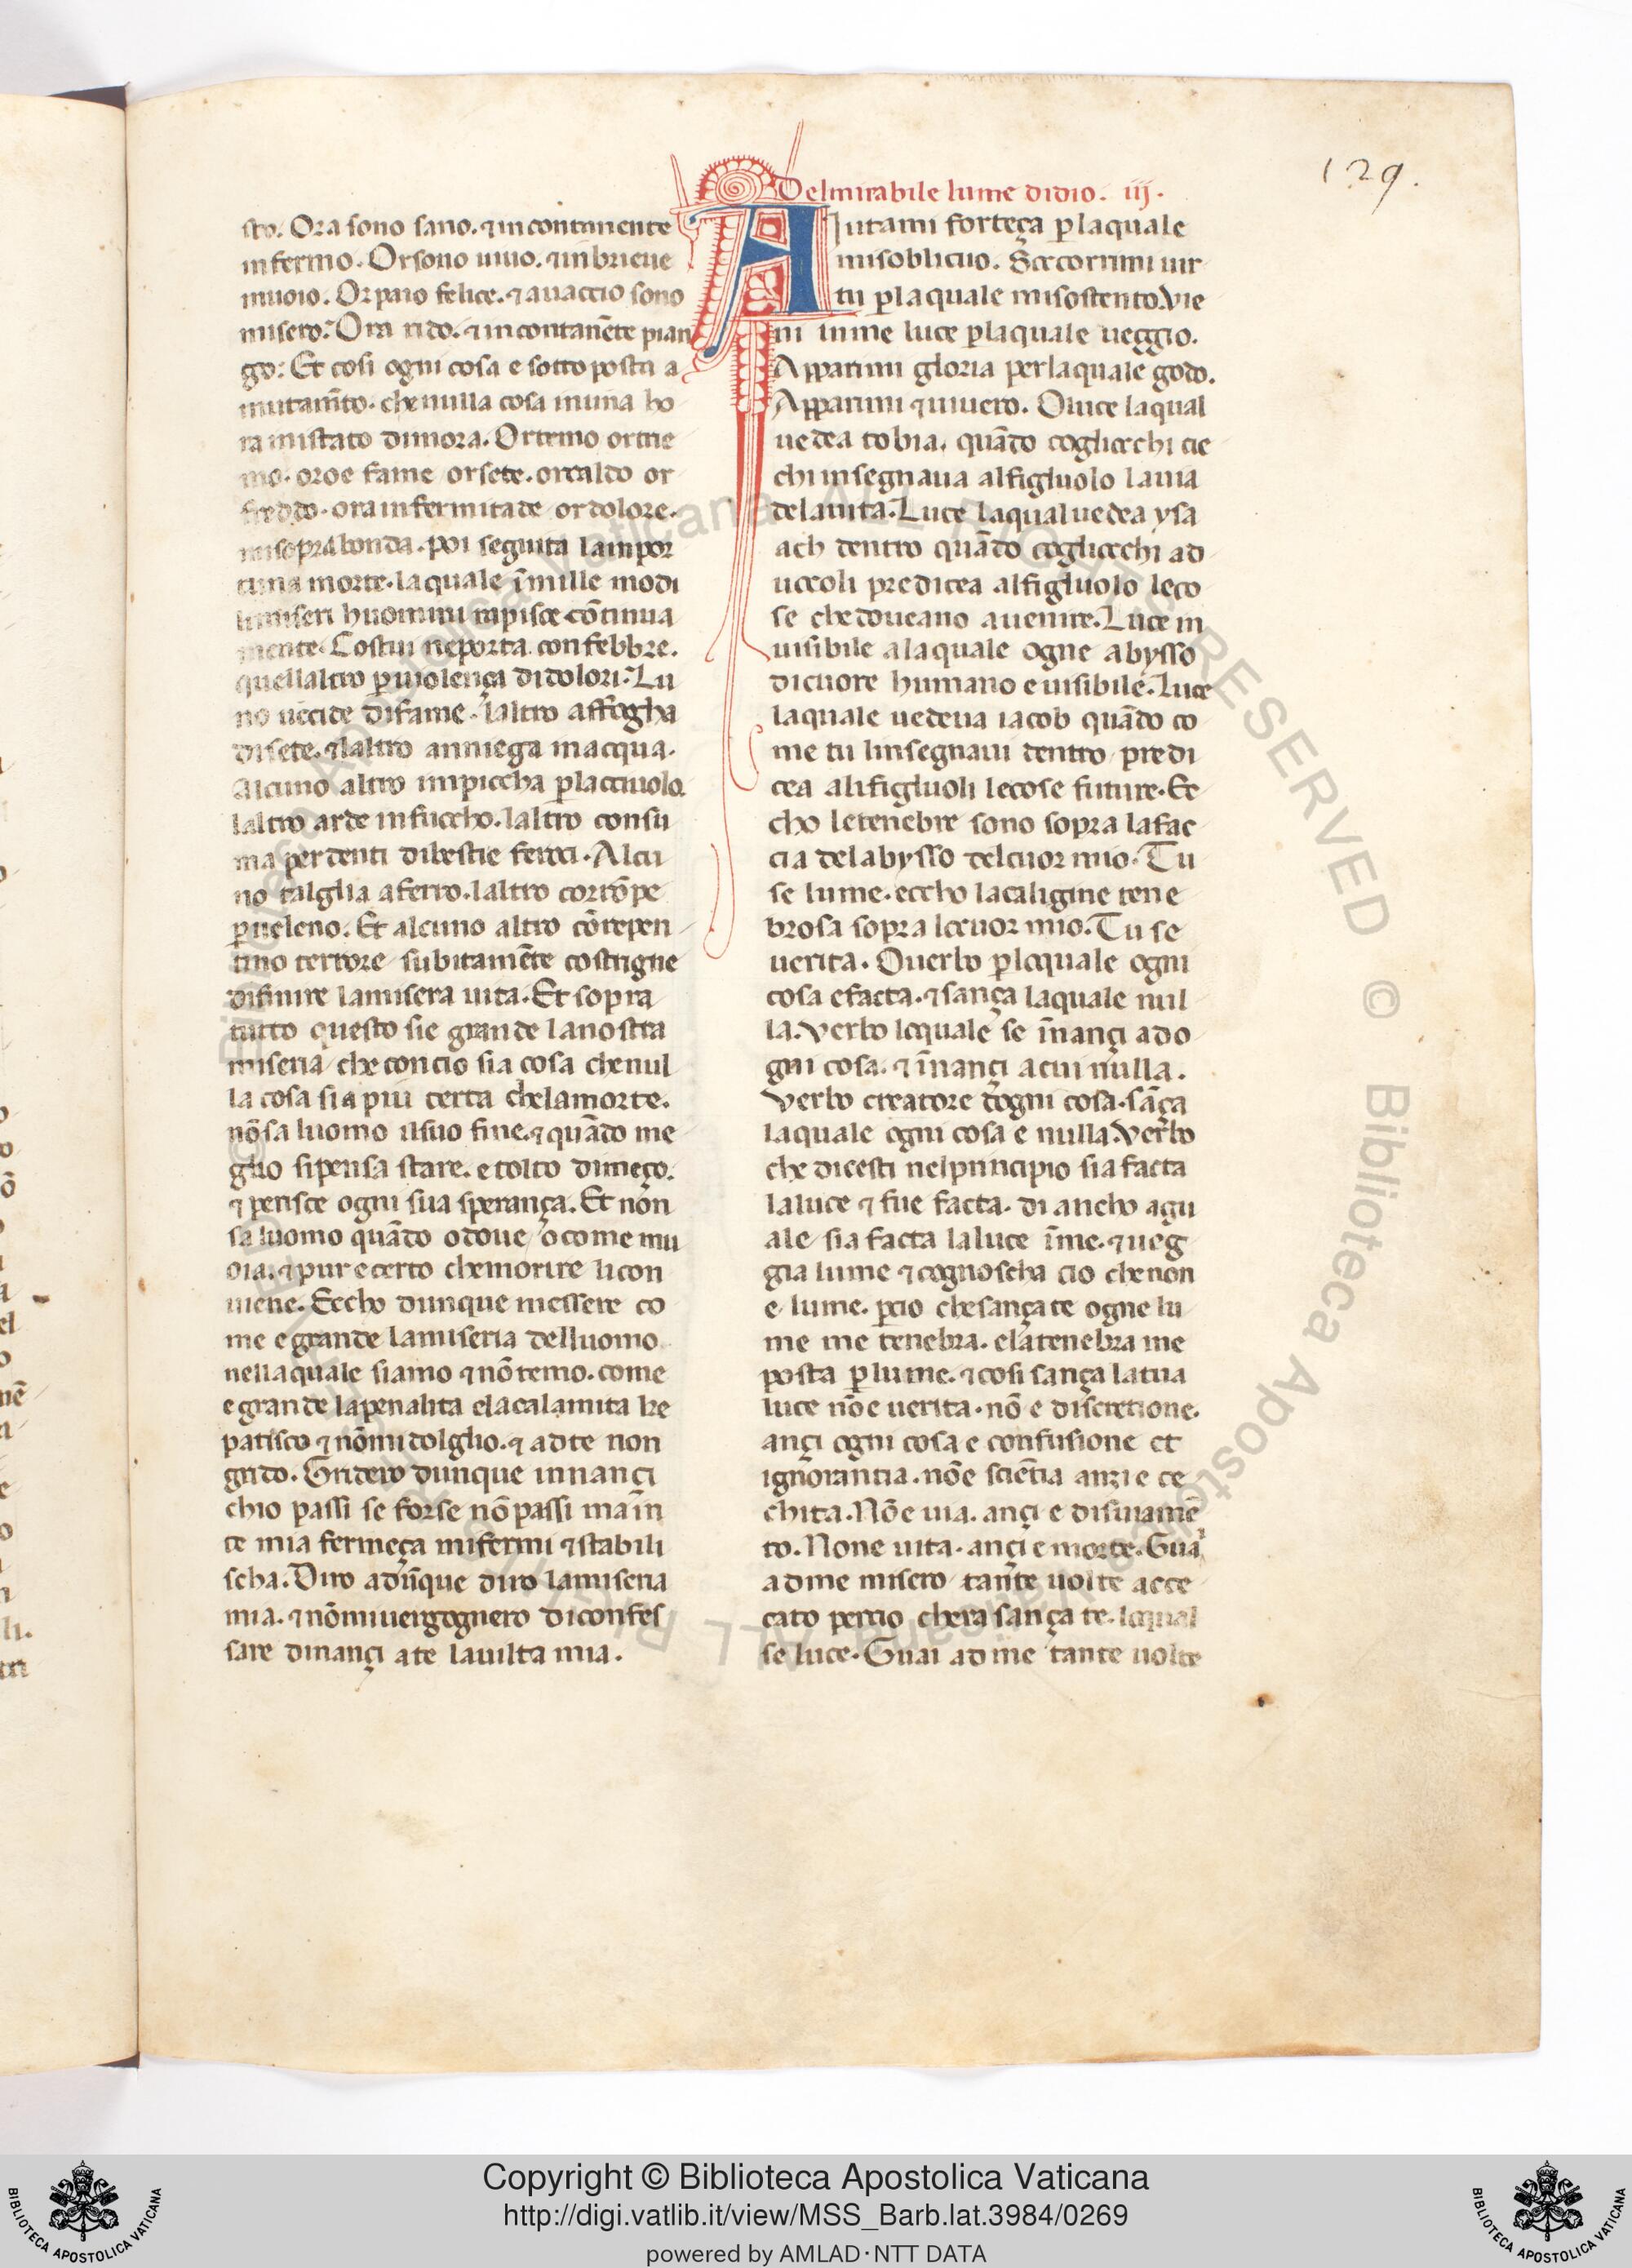 129.
sto. Ora sono sano. ⁊ incontanente
infermo. Or sono uiuo. ⁊ inbrieue
muoio. Or paio felice. ⁊ auaccio sono
misero. Ora rido. ⁊ incontanēte pian
go. Et cosi ogni cosa e sotto posta a
mutam̄to. che nulla cosa in una ho
ra instato dimora. Or temo or trie
mo. or oe fame or sete. or caldo or
freddo. ora infermitade or dolore.
mi soprabonda. poi seguita lainpor
tuna morte. laquale ī mille modi
limiseri huomini rapisce cōtinua
mente. Costui neporta con febbre.
quellaltro ꝑ uiolença didolori. Lu
no uccide difame. laltro affogha
disete. ⁊ laltro anniega inacqua.
Alcuno altro impiccha ꝑ lacciuolo.
laltro arde infuccho. laltro consu
ma per denti dibestie feroci. Alcu
no talglia aferro. laltro corrōpe
ꝑ ueleno. Et alcuno altro cō repen
tino terrore subitamēte costrigne
difinire lamisera uita. Et sopra
tutto questo sie grande lanostra
miseria che concio sia cosa che nul
la cosa sia piu certa che lamorte.
nō sa luomo il suo fine. ⁊ quādo me
glio si pensa stare. e tolto dimeço.
⁊ perisce ogni sua sperança. Et non
sa luomo quādo o doue o come mu
oia. ⁊ pur e certo che morire li con
uiene. Eccho dunque messere co
me e grande lamiseria delluomo
nella quale siamo ⁊ nō temo. come
e grande lapenalita e lacalamita ke
patisco ⁊ nō mi dolgho. ⁊ adte non
grido. Gridero dunque innançi
chio passi se forse nō passi ma in
te mia fermeça mi fermi ⁊ stabili
scha. Diro adūque diro lamiseria
mia. ⁊ nō mi uergognero di confes
sare dinançi ate lauilta mia.
Delmirabile lume didio. iij.
AJutami forteça ꝑ laquale
mi sobliuo. Soccorrimi uir
tu ꝑ laquale mi sostento. Vie
ni in me luce ꝑ laquale ueggio.
Apparimi gloria per laquale godo.
Apparimi ⁊ uiuero. O luce laqual
uedea tobia. quādo cogliocchi cie
chi insegnaua alfigluolo lauia
dela uita. Luce laqual uedea ysa
ach dentro quādo cogliocchi ad
uccoli predicea alfigluolo leco
se che doueano auenire. Luce in
uisibile ala quale ogne abysso
di cuore humano e uisibile. Luce
laquale uedeua iacob quādo co
me tu linsegnaui dentro predi
cea ali figluoli lecose future. Ec
cho le tenebre sono sopra lafac
cia delabysso del cuor mio. Tu
se lume. eccho lacaligine tene
brosa sopra locuor mio. Tu se
uerita. O uerbo ꝑ loquale ogni
cosa e facta. ⁊ sança laquale nul
la. Verbo loquale se īnançi ad o
gni cosa. ⁊ īnançi acui nulla.
Verbo creatore dogni cosa. sāça
laquale ogni cosa e nulla. Verbo
che dicesti nel principio sia facta
laluce ⁊ fue facta. di ancho agu
ale sia facta laluce ī me. ⁊ ueg
gia lume ⁊ cognoscha cio che non
e lume. ꝑcio che sança te ogne lu
me me tenebra. e la tenebra me
posta ꝑ lume. ⁊ cosi sança latua
luce nō e uerita. nō e discretione.
ançi ogni cosa e confusione et
ignorantia. nō e sciētia anzi e ce
chita. Nō e uia. ançi e disuiamē
to. Non e uita. ançi e morte. Guai
adme misero tante uolte acce
cato percio chera sança te. loqual
se luce. Guai ad me tante uolte
Copyright © Biblioteca Apostolica Vaticana
http://digi.vatlib.it/view/MSS_Barb.lat.3984/0269
powered by AMLAD·NTT DATA
BIBLIOTECA APOSTOLICA VATICANA
BIBLIOTECA APOSTOLICA VATICANA